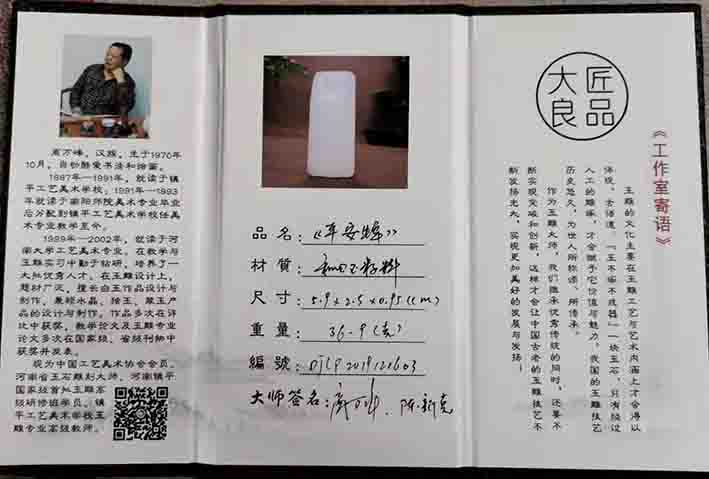 高万峰，汉族，生于1970年
10月，自幼酷爱书法和绘画。
1987年—1991年，就读于镇
平工艺美术学校；1991年—1993
年就读于南阳师院美术专业毕业
后分配到镇平工艺美术学校任美
术专业教学至今。
1999年—2002年，就读于河
南大学工艺美术专业，在教学与
玉雕实习中勤于钻研，培养了一
大批优秀人才。在玉雕设计上，
题材广泛，擅长白玉作品设计与
制作，兼修水晶、独玉、翠玉产
品的设计与制作，作品多次在评
比中获奖，教学论文及玉雕专业
论文多次在国家级、省级刊物中
获奖并发表。
现为中国工艺美术协会会员，
河南省玉石雕刻大师，河南镇平
国家级首批玉雕高
级研修班学员，镇
平工艺美术学校玉
雕专业高级教师。
品名：《平安牌》
材質：和田玉籽料
尺寸：5.9×2.5×0.95(cm)
重量：36.9(克)
編號：DJLP2019121603
大师签名： 陈新克
大良匠品
《工作室寄语》
玉雕的文化主要在玉雕工艺与艺术内涵上才会得以
体现，古语道：“玉不琢不成器”一块玉石，只有经过
人工的雕琢，才会赋予它价值与魅力，我国的玉雕技艺
历史悠久，为世人所称颂、所传承。
作为玉雕大师，我们继承优秀传统的同时，还要不
断实现突破和创新，这样才会让中国古老的玉雕技艺不
断发扬光大，实现更加美好的发展与发扬！